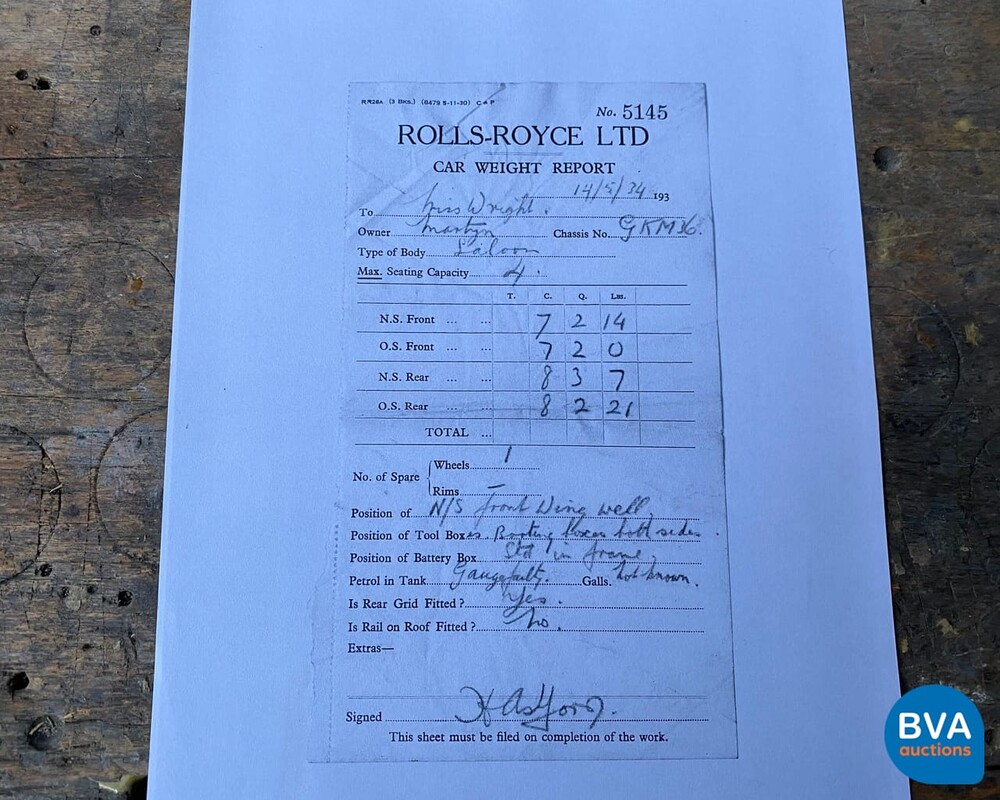 RR26A (3 BKS.) (8479 5-11-30) C & P
No. 5145
ROLLS-ROYCE LTD
CAR WEIGHT REPORT
14/5/34 193
To Miss Wright.
Owner Martyn Chassis No. GKM36.
Type of Body Saloon
Max. Seating Capacity 4.
T. C. Q. Lbs.
N.S. Front ... ... 7 2 14
O.S. Front ... ... 7 2 0
N.S. Rear ... ... 8 3 7
O.S. Rear ... ... 8 2 21
TOTAL ...
No. of Spare
Wheels 1
Rims –
Position of N/S front Wing well.
Position of Tool Boxes. boxes both sides.
Position of Battery Box Std in frame.
Petrol in Tank Gauge faulty. Galls. not known.
Is Rear Grid Fitted? Yes.
Is Rail on Roof Fitted? No.
Extras—
Signed
This sheet must be filed on completion of the work.
BVA
auctions